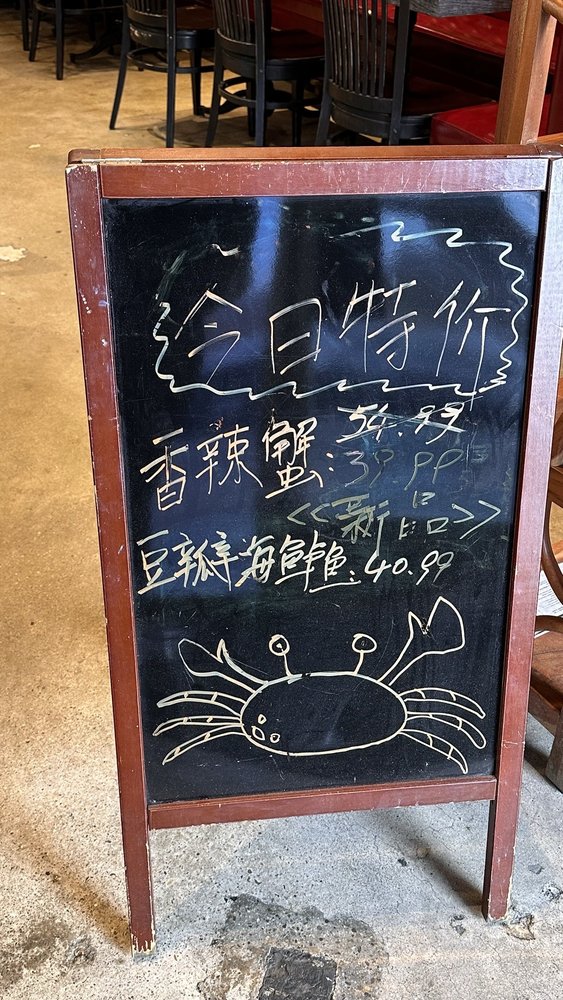 今日特价
香辣蟹: 54.99
39.99
<<新品>>
豆瓣海鲜鱼: 40.99